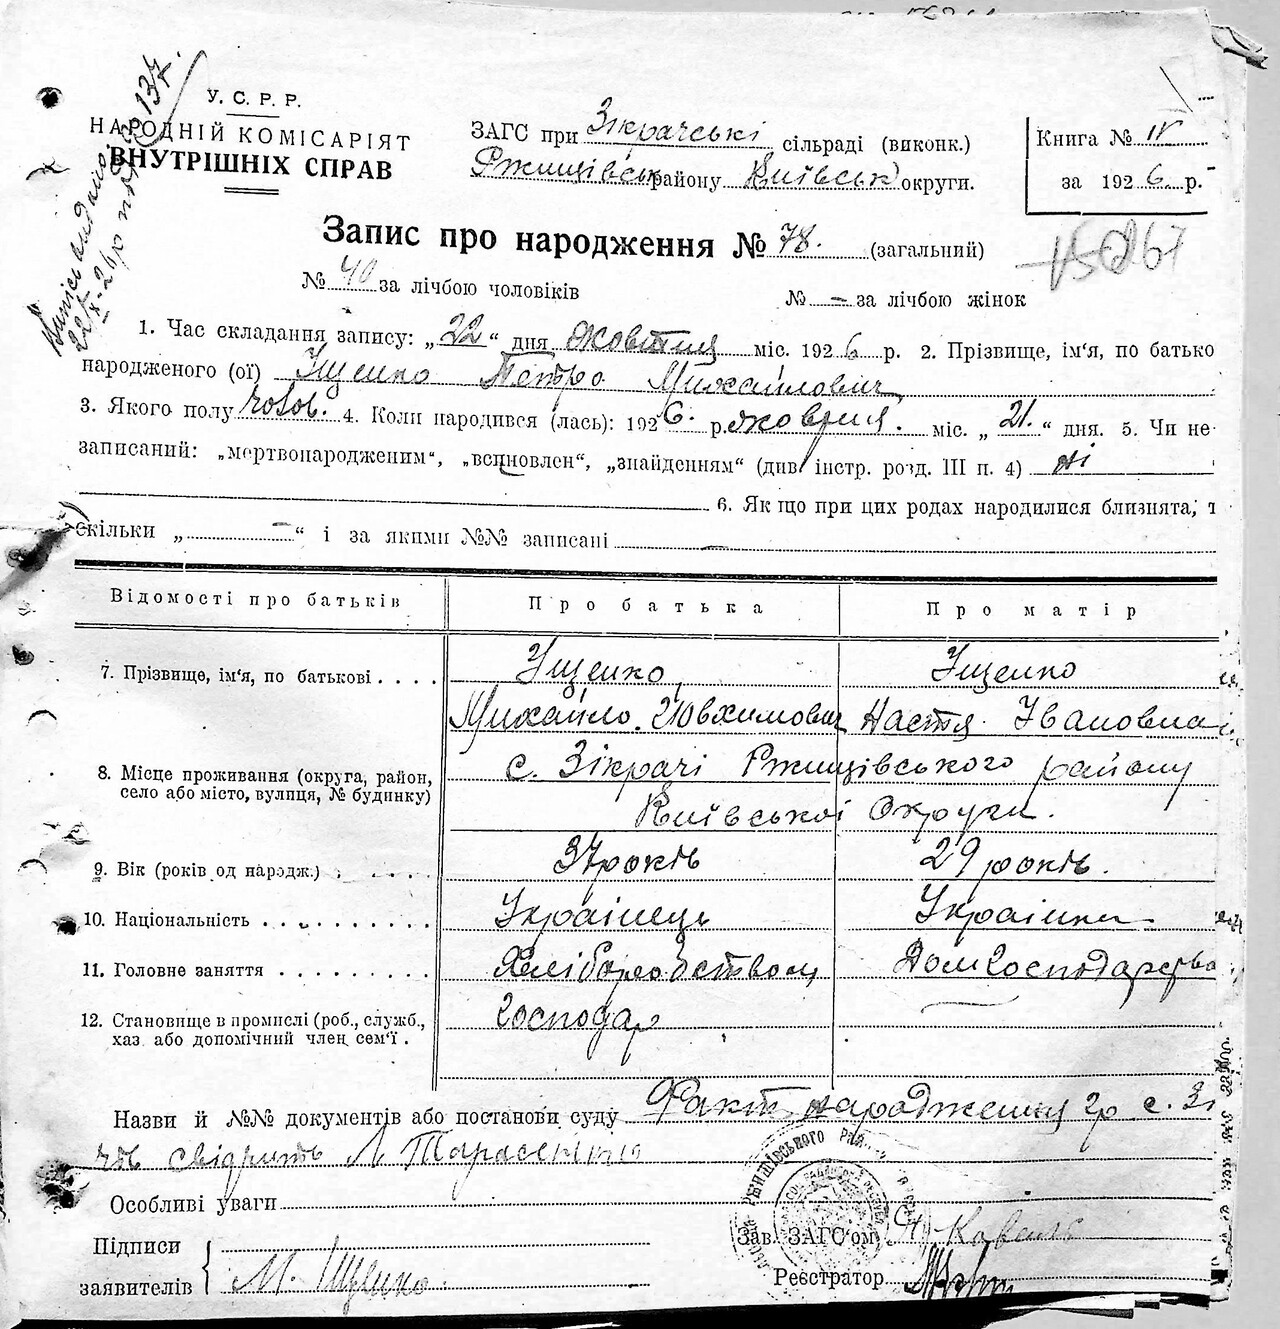 У. С. Р. Р.
НАРОДНІЙ КОМІСАРІЯТ
ВНУТРІШНІХ СПРАВ
137
ЗАГС при Зікрачській сільраді (виконк.)
Ржищівськ району Київськ округи.
Книга № IV
за 1926 р.
Запис про народження № 78. (загальний)
15067
№ 40 за лічбою чоловіків № – за лічбою жінок
1. Час складання запису: „22“ дня жовтня міс. 1926 р. 2. Прізвище, ім'я, по батько
народженого (ої) Іщенко Петро Михайлович
3. Якого полу чолов. 4. Коли народився (лась): 1926 р. жовтня. міс. „21.“ дня. 5. Чи не
записаний: „мертвонародженим“, „всиновлен“, „знайденням“ (див. інстр. розд. III п. 4) ні
6. Як що при цих родах народилися близнята, т
скільки „ – “ і за якими №№ записані –
Відомості про батьків Про батька Про матір
7. Прізвище, ім'я, по батькові . . . . Іщенко Іщенко
Михайло Ювхимович Настя Івановна
8. Місце проживання (округа, район, с. Зікрачі Ржищівського району
село або місто, вулиця, № будинку) Київської Округи.
9. Вік (років од народж.) 37 років 29 років.
10. Національність . . . . . . . . . Українець Українка
11. Головне заняття . . . . . . . . . Хліборобством Домгосподарство
12. Становище в промислі (роб., служб., Господар
хаз або допомічний член сем'ї .
Назви й №№ документів або постанови суду Факт народження гр с. Зі
свідчить Л Тарасенко
Особливі уваги
Підписи
заявителів М. Іщенко
Зав. ЗАГС'ом Коваль
Реєстратор